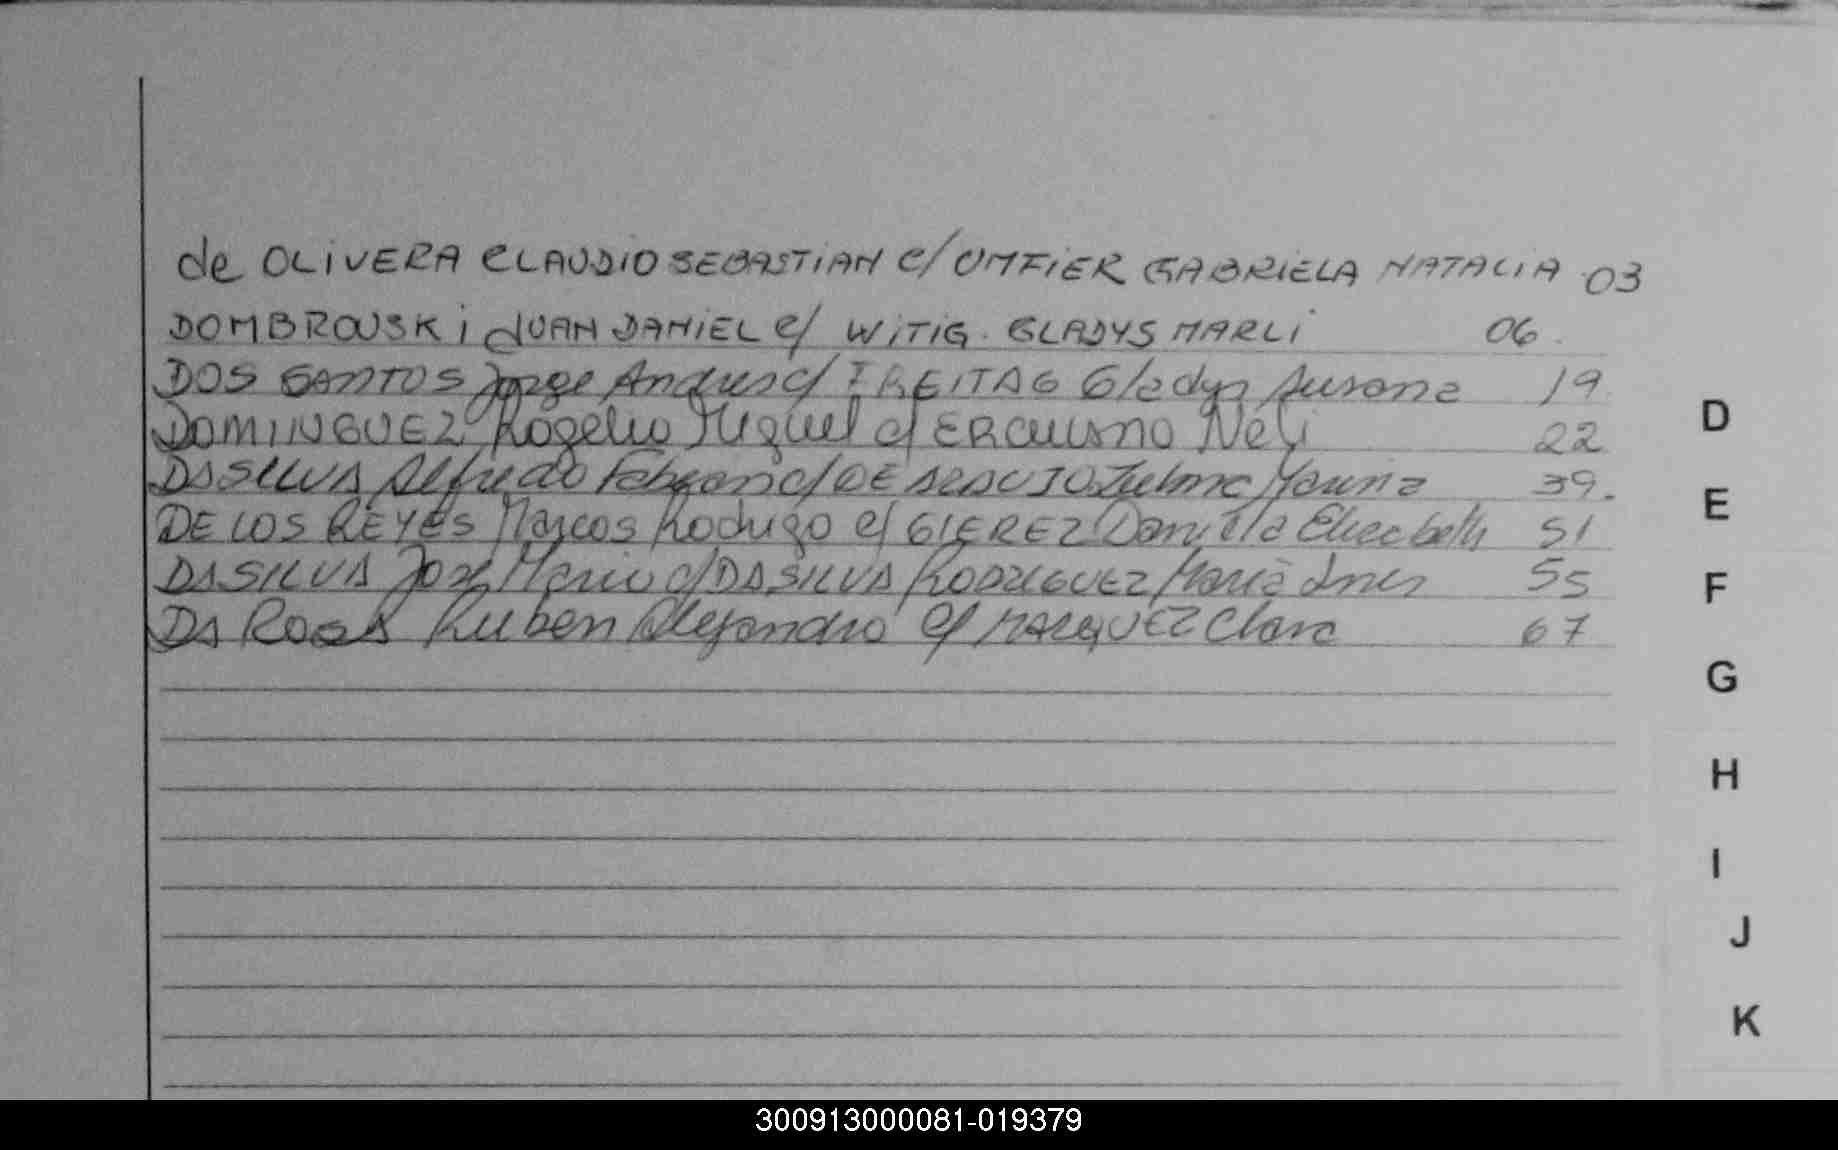 de OLIVERA CLAUDIO SEBASTIAN c/ OMFIER GABRIELA NATALIA 03
DOMBROUSKi JUAN DANIEL c/ WiTiG. GLADYS MARLi 06.
DOS SANTOS Jorge Andres c/ FREITAG Gladys Susana 19
DOMINGUEZ Rogelio Miguel c/ ERCULANO Neli 22
DA SILVA Alfredo Fabian c/ DE ARAUJO Marina 39.
DE LOS REYES Marcos Rodrigo c/ GIEREZ Daniela Elizabeth 51
DA SILVA José Mario c/ DA SILVA RODRIGUEZ Maria Ines 55
DA ROSA Ruben Alejandro c/ MARQUEZ Clara 67
D
E
F
G
H
I
J
K
300913000081-019379